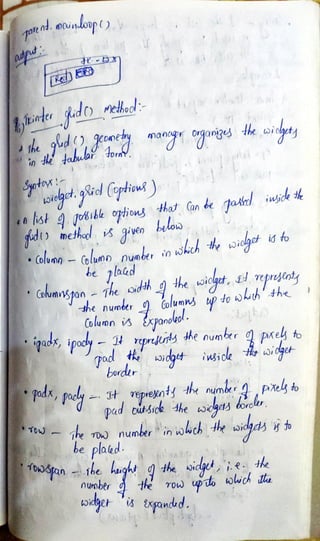 parent.mainloop()
output:-
tk - □ x
Red
Tkinter grid() method:-
* The grid() geometry manager organizes the widgets
in the tabular form.
Syntax:-
widget.grid (options)
* A list of possible options that can be passed inside the
grid() method is given below
• Column - Column number in which the widget is to
be placed
• Columnspan - The width of the widget, It represents
the number of columns up to which the
Column is expanded.
• ipadx, ipady - It represents the number of pixels to
pad the widget inside the widget
border
• padx, pady - It represents the number of pixels to
pad outside the widgets border.
• row - The row number in which the widgets is to
be placed.
• rowspan - The height of the widget, i.e. the
number of the row upto which the
widget is expanded.